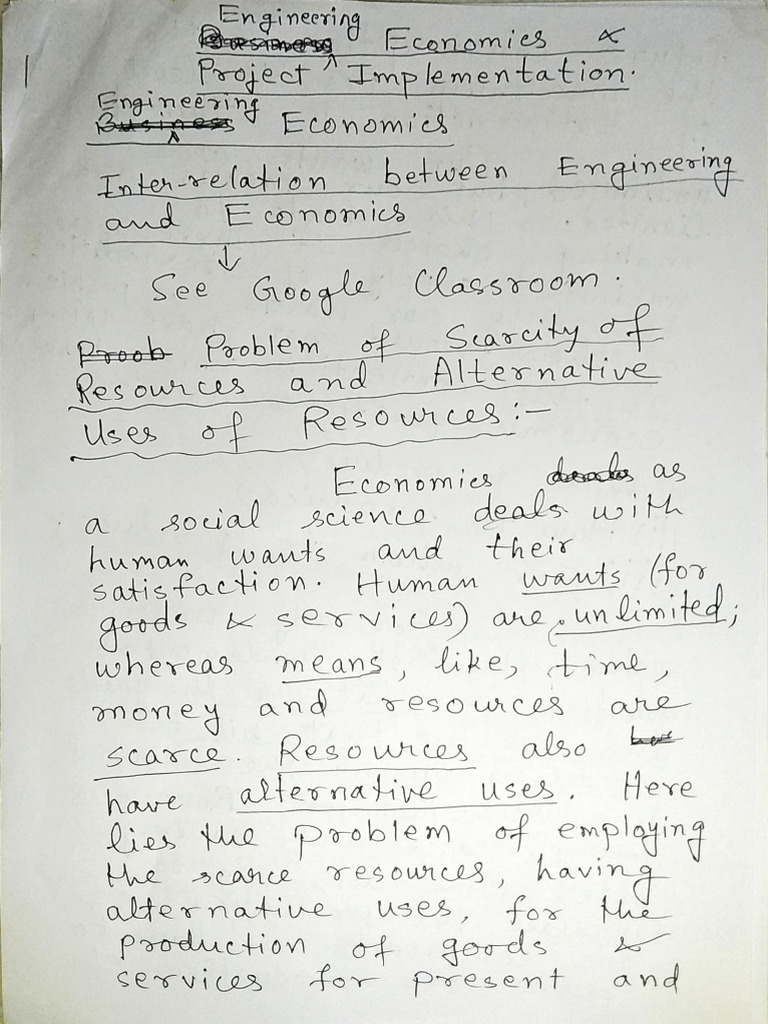 Engineering
Business Economics &
Project Implementation.
1
Engineering
Business Economics
Inter-relation between Engineering
and Economics
↓
See Google Classroom.
Proob Problem of Scarcity of
Resources and Alternative
Uses of Resources:-
Economics deals as
a social science deals with
human wants and their
satisfaction. Human wants (for
goods & services) are unlimited;
whereas means, like, time,
money and resources are
scarce. Resources also
have alternative uses. Here
lies the problem of employing
the scarce resources, having
alternative uses, for the
production of goods &
services for present and